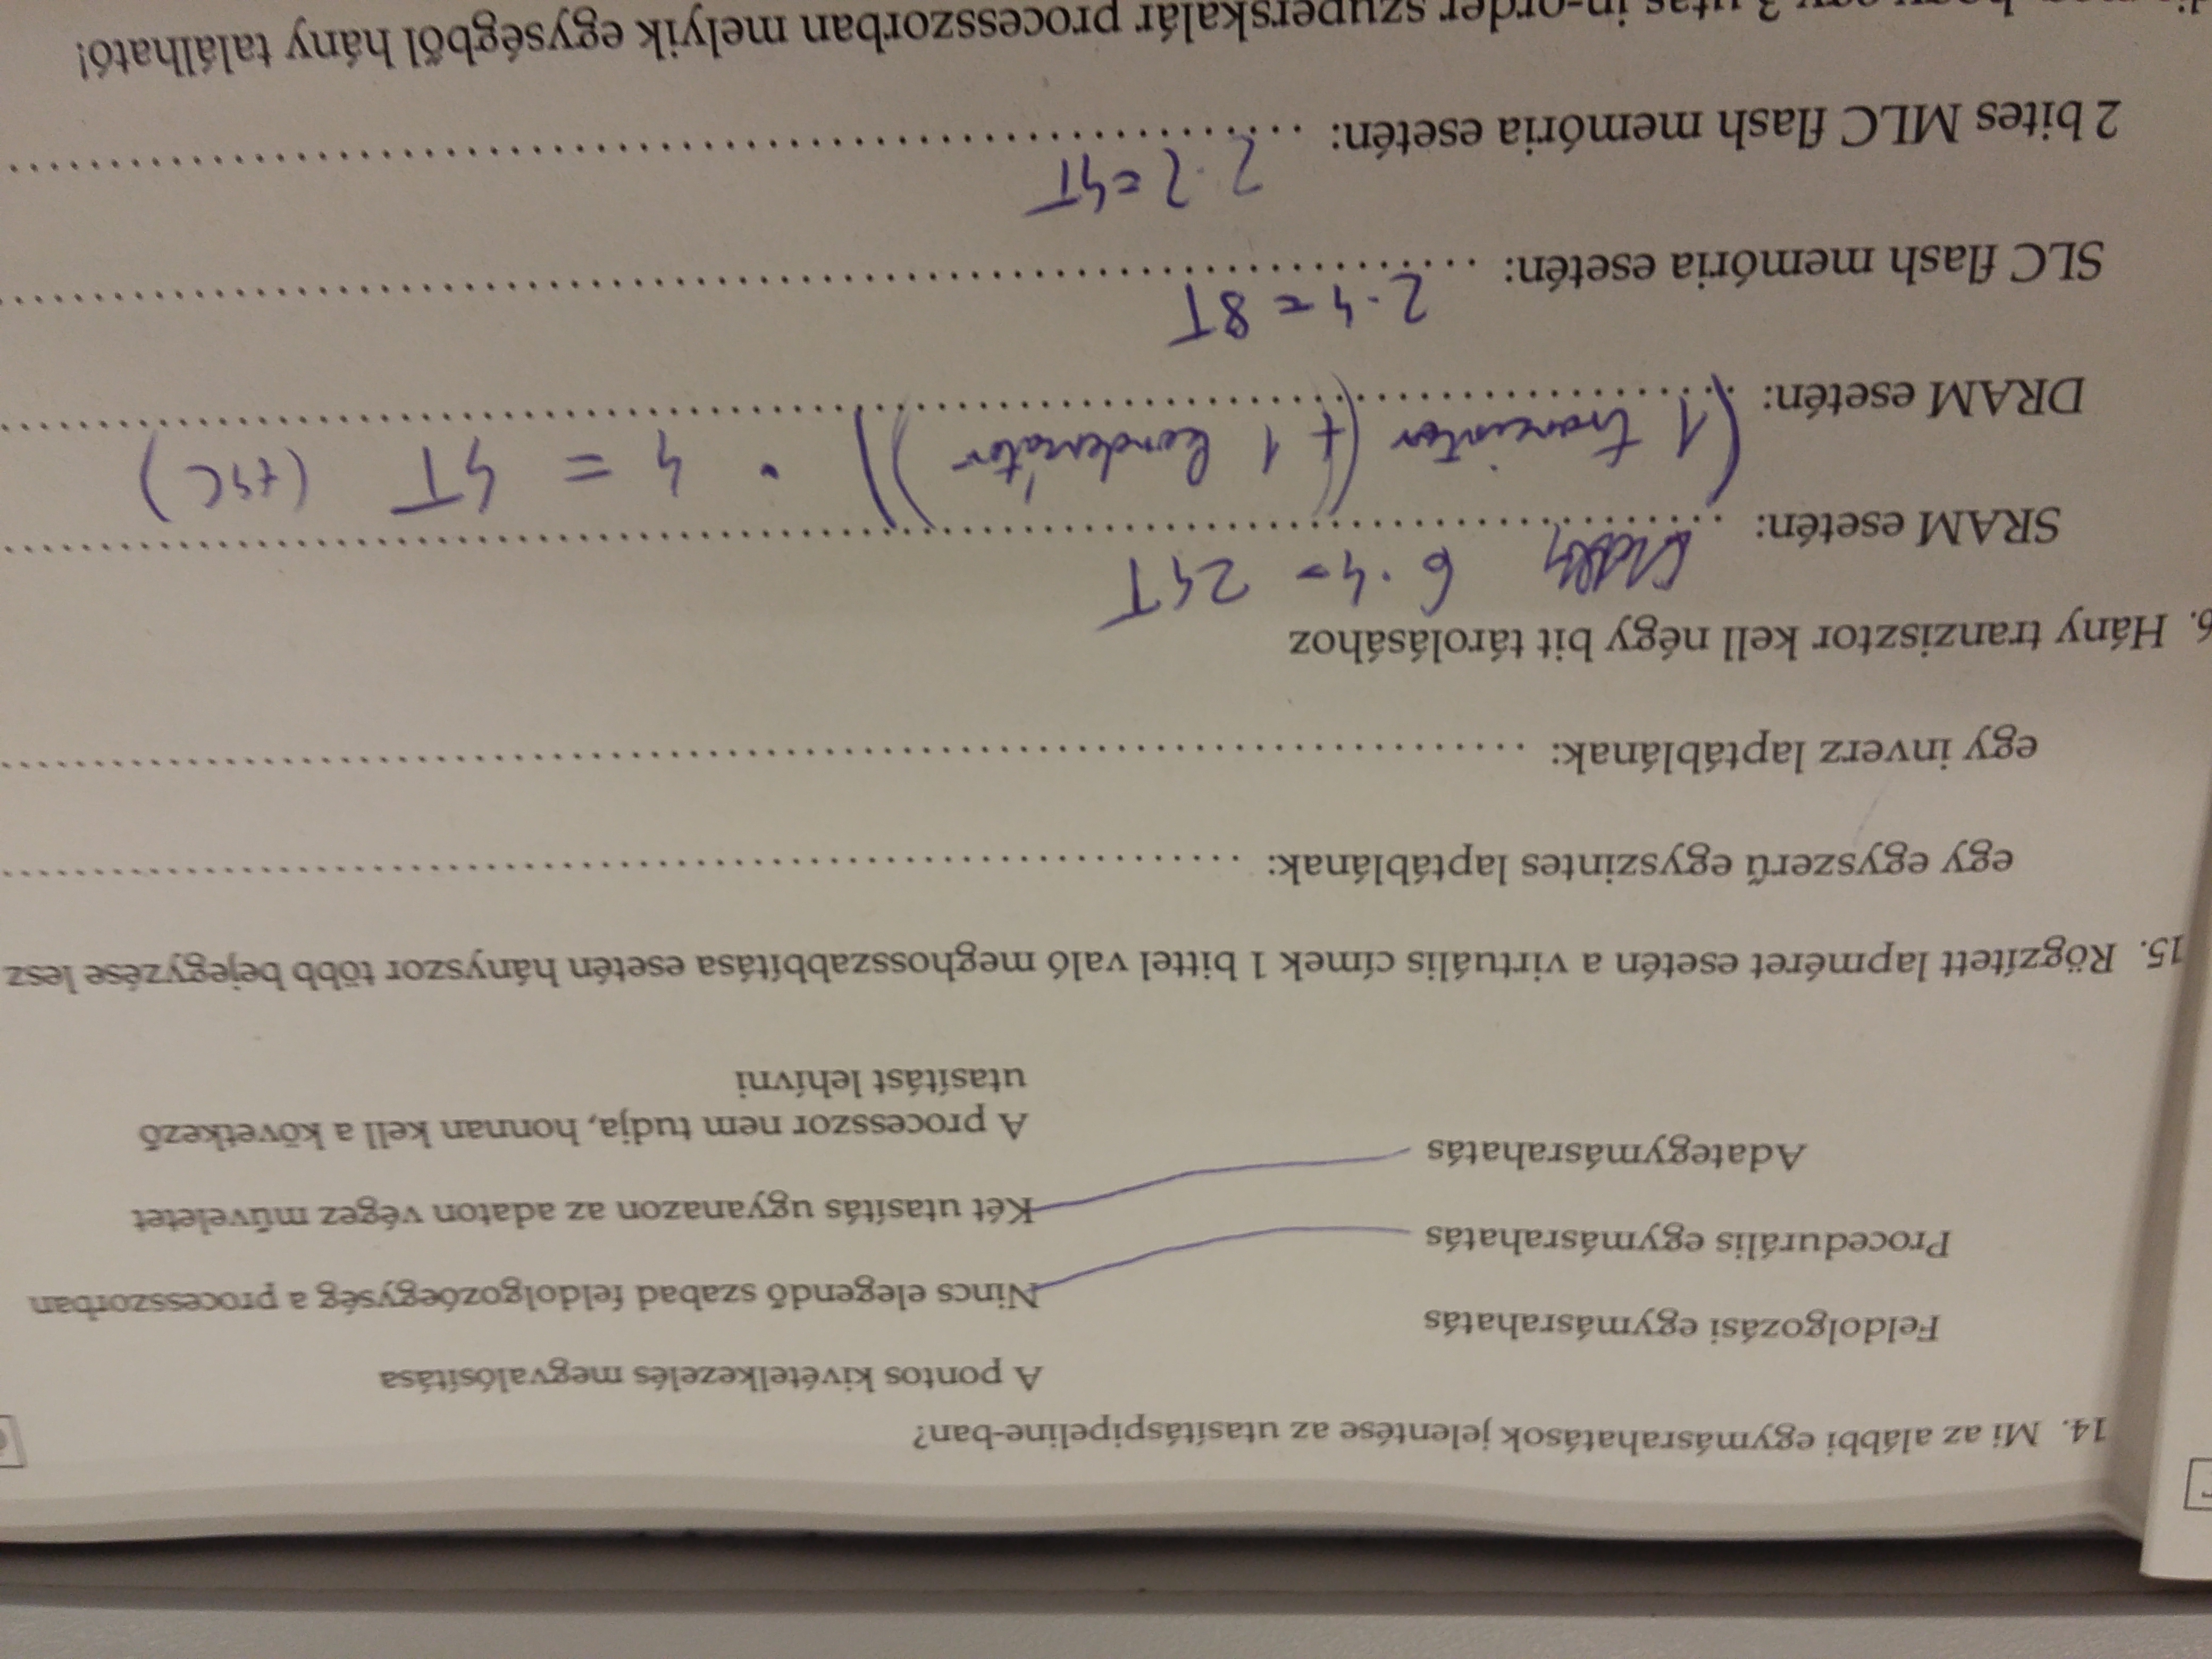 14. Mi az alábbi egymásrahatások jelentése az utasításpipeline-ban?
A pontos kivételkezelés megvalósítása
Feldolgozási egymásrahatás
Nincs elegendő szabad feldolgozóegység a processzorban
Procedurális egymásrahatás
Két utasítás ugyanazon az adaton végez műveletet
Adategymásrahatás
A processzor nem tudja, honnan kell a következő
utasítást lehívni
15. Rögzített lapméret esetén a virtuális címek 1 bittel való meghosszabbítása esetén hányszor több bejegyzése lesz
egy egyszerű egyszintes laptáblának:
egy inverz laptáblának:
6. Hány tranzisztor kell négy bit tárolásához
SRAM esetén: 6 · 4 = 24T
DRAM esetén: (1 trancistor (+ 1 kondenzátor)) · 4 = 4T (+4C)
SLC flash memória esetén: 2 · 4 = 8T
2 bites MLC flash memória esetén: 2 · 2 = 4T
3 utas in-order szuperskalár processzorban melyik egységből hány található!